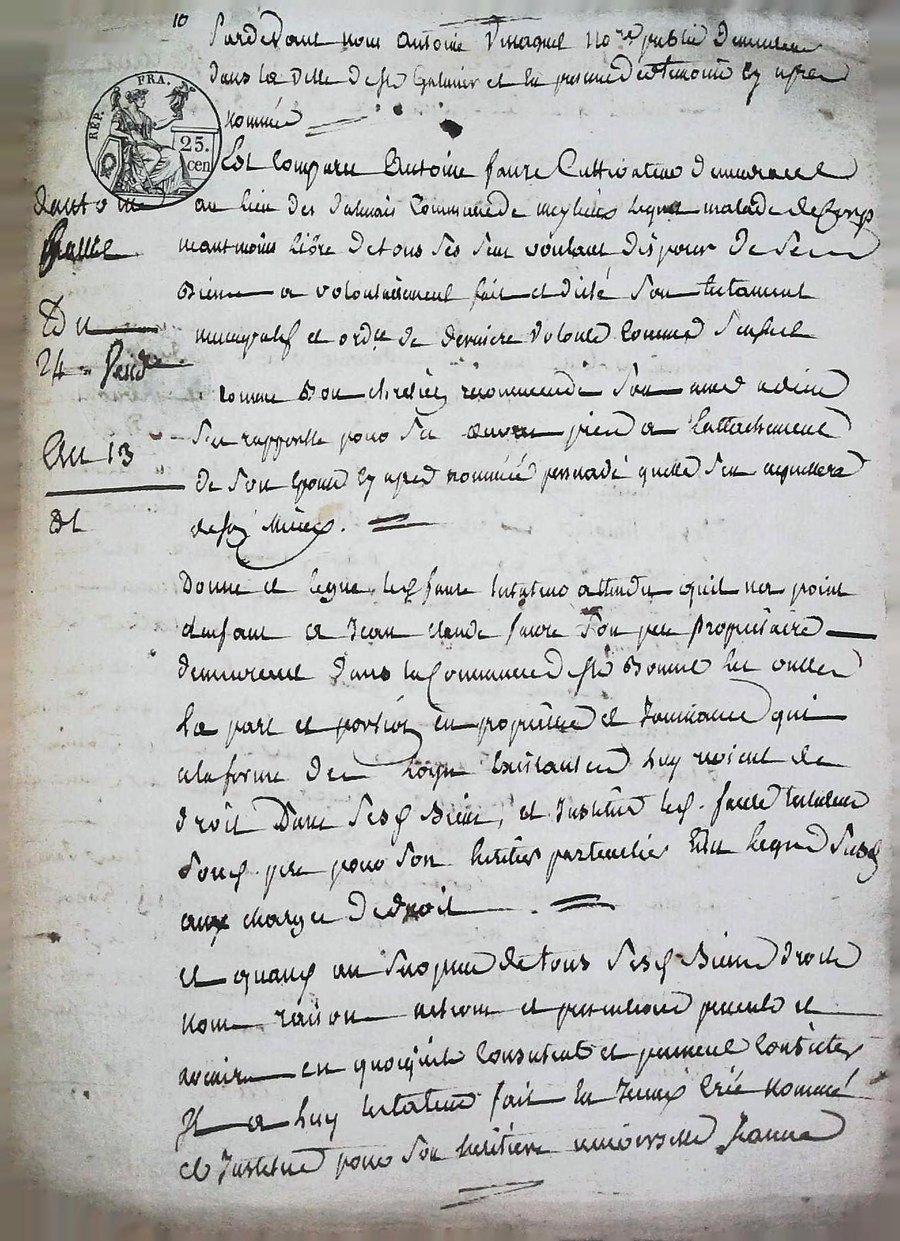 10
Pardevant nous Antoine notre public demeurant
dans la ville de St Galmier et en presence des temoins cy apres
nommés
REP. FRA.
25.
cen
Est comparu Antoine faure Cultivateur demeurant
au lieu des commune de legue malade de Corps
neantmoins libre de tous ses sens voulant disposer de ses
Biens a volontairement fait et dicté son testament
nuncupatif et ordce de derniere volonté comme s'ensuit
Du
24 Vend
An 13
Comme Bon chretien recommende son ame a dieu
s'en rapporte pour ses œuvres pies a l'attachement
de son epouse cy apres nommée persuadé quelle s'en acquittera
de son Mieux.
Donne et legue led faure testateur attendu qu'il n'a point
d'enfant a Jean claude faure son pere Propriétaire
demeurant dans la Commune de St Bonnet les oulles
la part et portion en propriété et Jouissance qui
a la forme des loix luy revient de
droit Dans sesd Biens, et Institue led. faure testateur
sond. pere pour son heritier particulier
aux charges de droit
et quand au surplus de tous sesd Biens droits
noms raisons actions et pretentions presents et
avenir en quoiqu'ils consistent et peuvent consister
Il a luy testateur fait créé nommé
et Institué pour son heritière universelle Jeanne